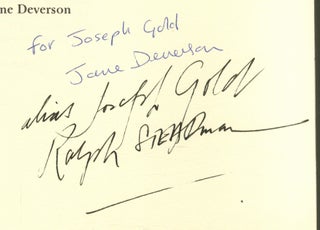 ne Deverson
for Joseph Gold
Jane Deverson
alias Joseph Gold
Ralph STEADman